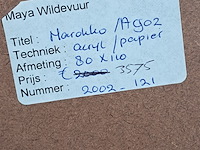 Maya Wildevuur
Titel : Marokko / Agoz
Techniek : acryl / papier
Afmeting : 80 x 110
Prijs : € 3575
Nummer : 2002 - 121